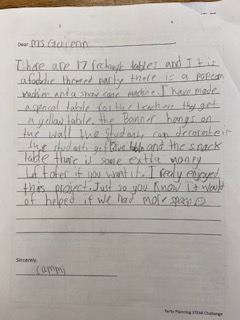 Dear Ms Guienn
There are 17 rectangle tables and it is
a foodie themed party there is a popcorn
machien and a snow cone machine. I have made
a specal table for the teachers they get
a yellow table. the Banner hangs on
the wall the students can decorate it
the students get table and the snack
table there is some extra money
left over if you want it. I realy enjoyed
this project. Just so you know it would
of helped if we had more space
Sincerely,
rammi
Party Planning STEM Challenge